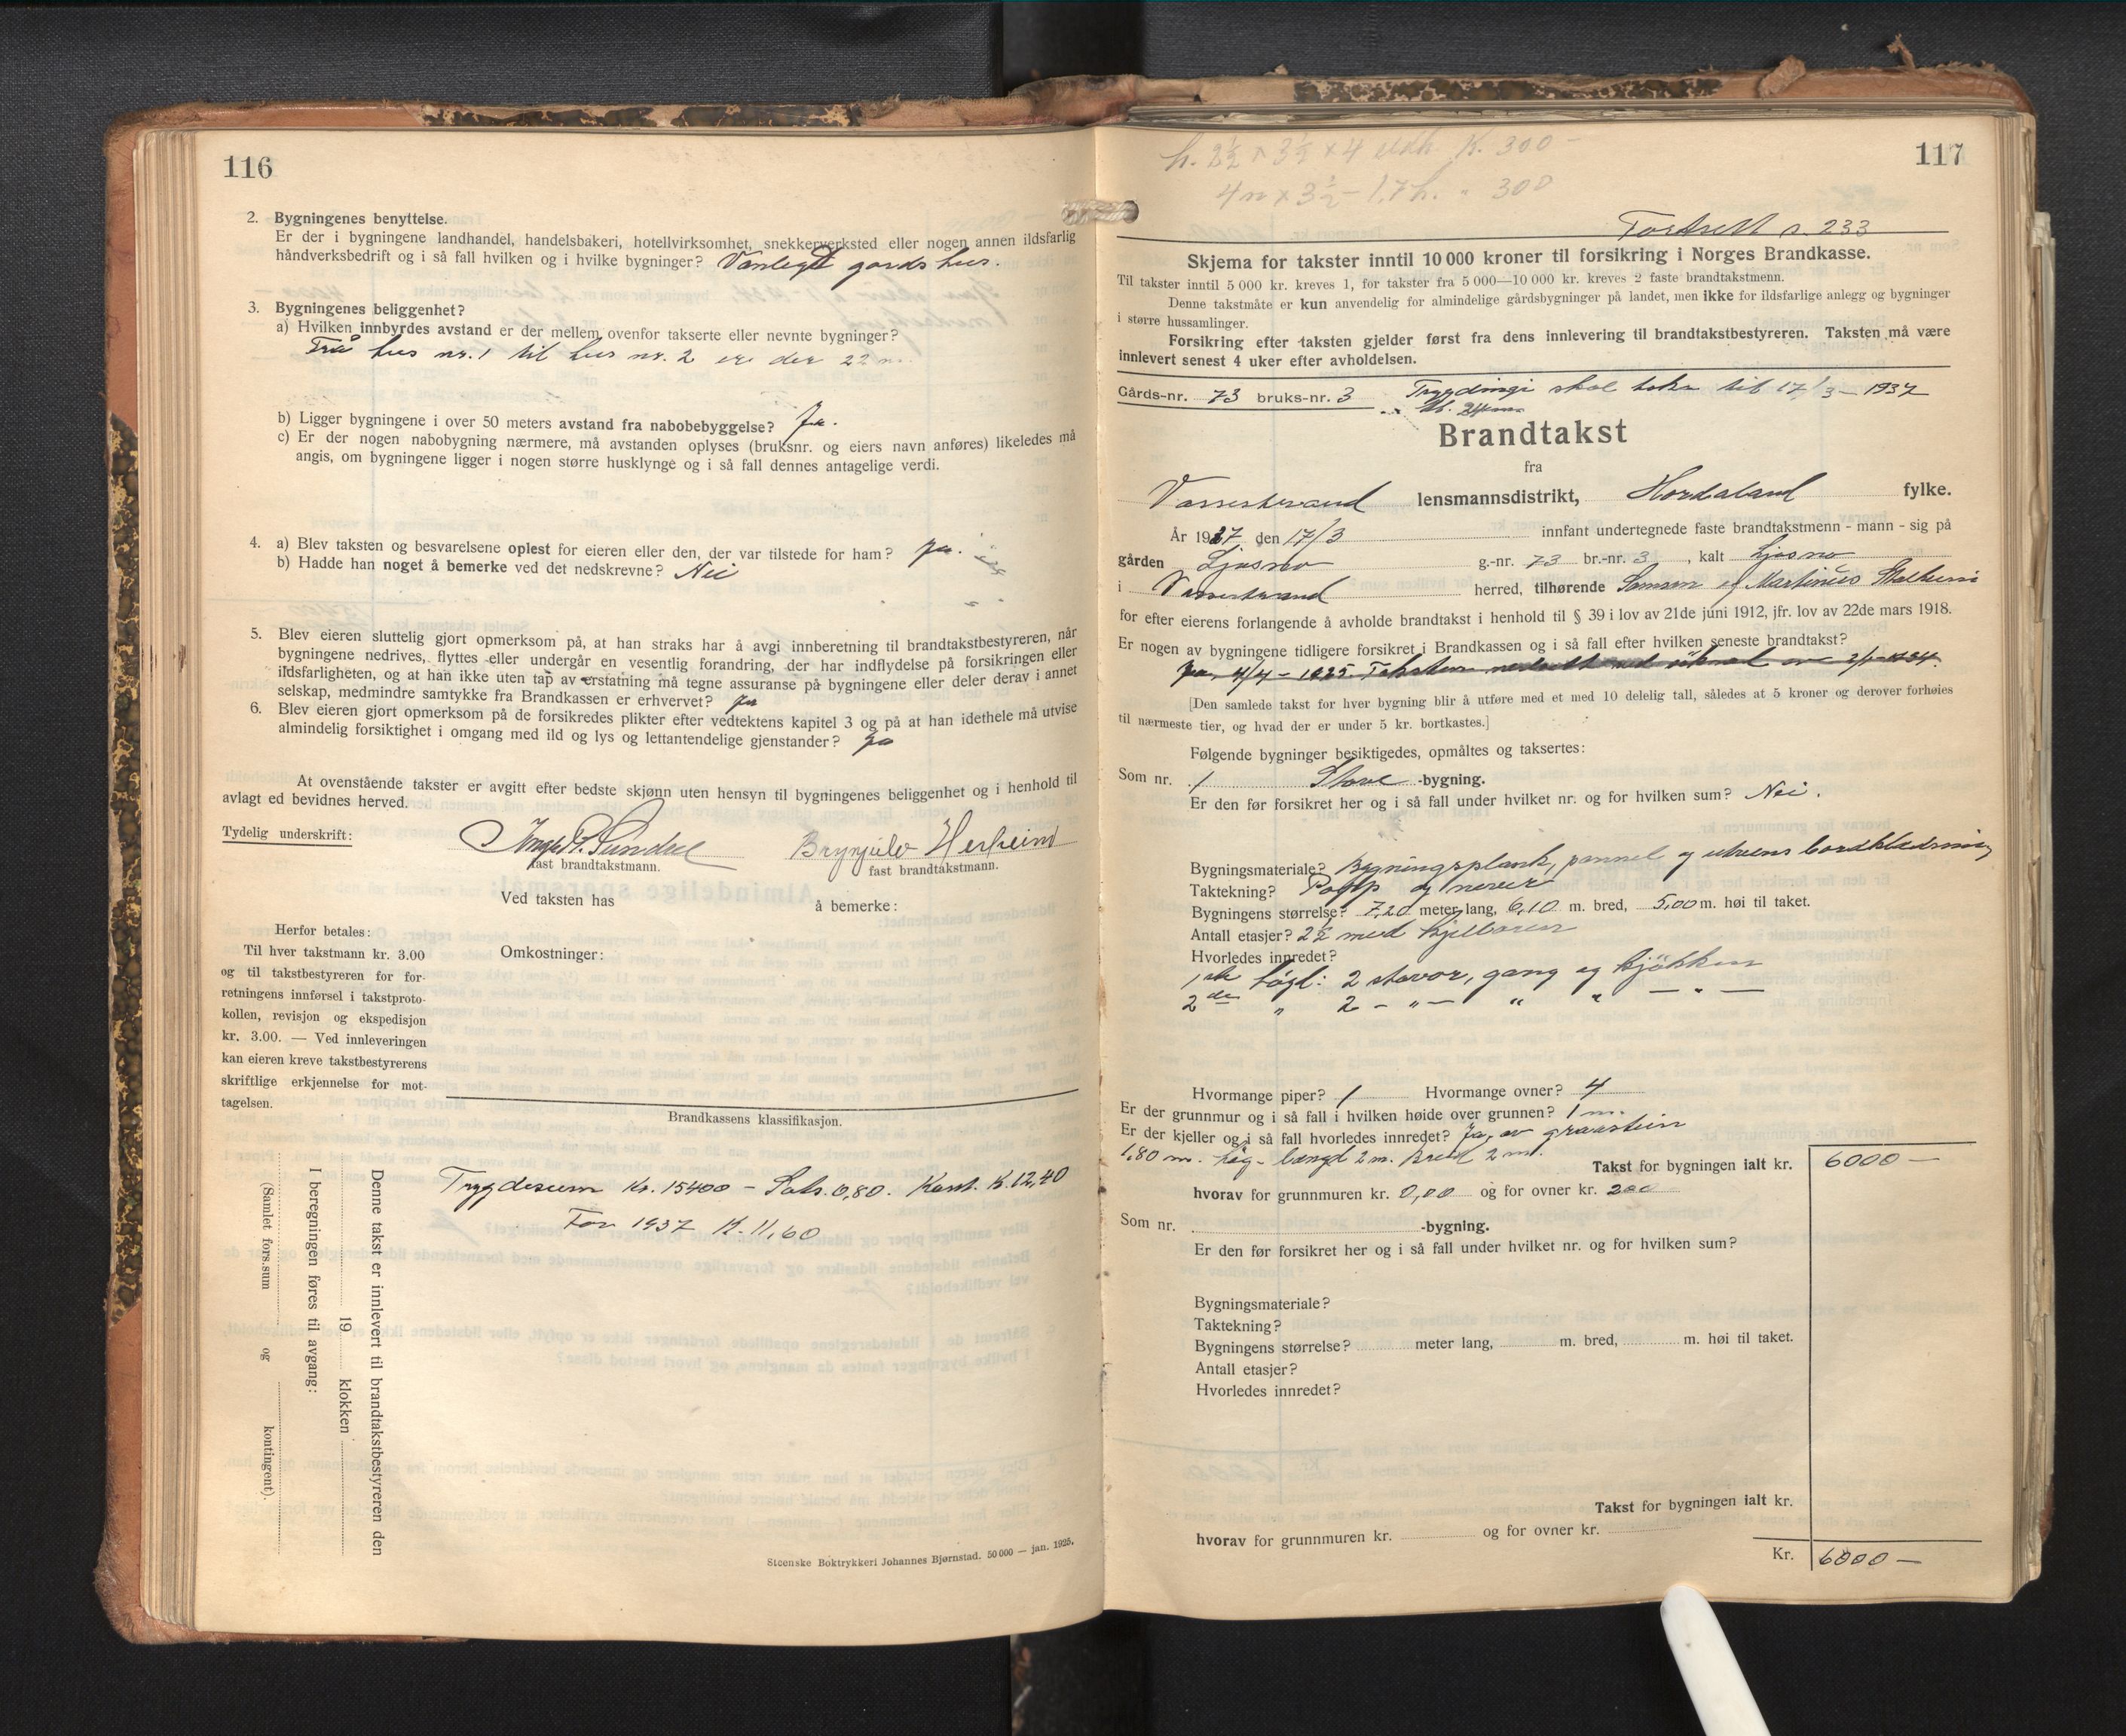 116
2. Bygningenes benyttelse.
Er der i bygningene landhandel, handelsbakeri, hotellvirksomhet, snekkerverksted eller nogen annen ildsfarlig
håndverksbedrift og i så fall hvilken og i hvilke bygninger? Vanlege gards hus.
3. Bygningenes beliggenhet?
a) Hvilken innbyrdes avstand er der mellem ovenfor takserte eller nevnte bygninger?
Frå hus nr. 1 til hus nr. 2 er der 22 m.
b) Ligger bygningene i over 50 meters avstand fra nabobebyggelse? Ja.
c) Er der nogen nabobygning nærmere, må avstanden oplyses (bruksnr. og eiers navn anføres) likeledes må
angis, om bygningene ligger i nogen større husklynge og i så fall dennes antagelige verdi.
4. a) Blev taksten og besvarelsene oplest for eieren eller den, der var tilstede for ham? Ja.
b) Hadde han noget å bemerke ved det nedskrevne? Nei
5. Blev eieren sluttelig gjort opmerksom på, at han straks har å avgi innberetning til brandtakstbestyreren, når
bygningene nedrives, flyttes eller undergår en vesentlig forandring, der har indflydelse på forsikringen eller
ildsfarligheten, og at han ikke uten tap av erstatning må tegne assuranse på bygningene eller deler derav i annet
selskap, medmindre samtykke fra Brandkassen er erhvervet? Ja
6. Blev eieren gjort opmerksom på de forsikredes plikter efter vedtektens kapitel 3 og på at han idethele må utvise
almindelig forsiktighet i omgang med ild og lys og lettantendelige gjenstander? Ja
At ovenstående takster er avgitt efter bedste skjønn uten hensyn til bygningenes beliggenhet og i henhold til
avlagt ed bevidnes herved.
Tydelig underskrift: Brynjulv Herheim
fast brandtakstmann. fast brandtakstmann.
Ved taksten has å bemerke:
Herfor betales:
Til hver takstmann kr. 3.00
og til takstbestyreren for for-
retningens innførsel i takstproto-
kollen, revisjon og ekspedisjon
kr. 3.00. — Ved innleveringen
kan eieren kreve takstbestyrerens
skriftlige erkjennelse for mot-
tagelsen.
Omkostninger:
Brandkassens klassifikasjon.
Trygdesum Kr. 15400 – Sats. 0,80. Kont. K. 12,40
For 1937 K. 11,60
Denne takst er innlevert til brandtakstbestyreren den
19 klokken
I beregningen føres til avgang:
(Samlet fors.sum og kontingent).
Steenske Boktrykkeri Johannes Bjørnstad. 50 000 — jan. 1925.
117
h. 2½ × 3½ × 4 K. 300 –
4 m × 3½ – 1,7 h. " 300
s. 233
Skjema for takster inntil 10 000 kroner til forsikring i Norges Brandkasse.
Til takster inntil 5 000 kr. kreves 1, for takster fra 5 000—10 000 kr. kreves 2 faste brandtakstmenn.
Denne takstmåte er kun anvendelig for almindelige gårdsbygninger på landet, men ikke for ildsfarlige anlegg og bygninger
i større hussamlinger.
Forsikring efter taksten gjelder først fra dens innlevering til brandtakstbestyreren. Taksten må være
innlevert senest 4 uker efter avholdelsen.
Gårds-nr. 73 bruks-nr. 3 Trygdingi skal taka til 17/3 – 1937
Brandtakst
fra
Vossestrand lensmannsdistrikt, Hordaland fylke.
År 1937 den 17/3 innfant undertegnede faste brandtakstmenn - mann - sig på
gården Ljosno g.-nr. 73 br.-nr. 3, kalt Ljosno
i Vossestrand herred, tilhørende Samson og Martinus Stalheim
for efter eierens forlangende å avholde brandtakst i henhold til § 39 i lov av 21de juni 1912, jfr. lov av 22de mars 1918.
Er nogen av bygningene tidligere forsikret i Brandkassen og i så fall efter hvilken seneste brandtakst?
[Den samlede takst for hver bygning blir å utføre med et med 10 delelig tall, således at 5 kroner og derover forhøies
til nærmeste tier, og hvad der er under 5 kr. bortkastes.]
Følgende bygninger besiktigedes, opmåltes og taksertes:
Som nr. 1 Stove -bygning.
Er den før forsikret her og i så fall under hvilket nr. og for hvilken sum? Nei.
Bygningsmateriale? Bygningsplank, pannel og utvens bordklædning
Taktekning? Papp og never
Bygningens størrelse? 7,20 meter lang, 6,10 m. bred, 5,00 m. høi til taket.
Antall etasjer? 2½ med kjellaren
Hvorledes innredet?
1ste høgd: 2 stovor, gang og kjøkken
2de " 2 – " – " " – " –
Hvormange piper? 1 Hvormange ovner? 4
Er der grunnmur og i så fall i hvilken høide over grunnen? 1 m.
Er der kjeller og i så fall hvorledes innredet? Ja, av graastein
1,80 m. høg - længd 2 m. Breid 2 m.
Takst for bygningen ialt kr. 6000 —
hvorav for grunnmuren kr. 0,00 og for ovner kr. 200
Som nr. -bygning.
Er den før forsikret her og i så fall under hvilket nr. og for hvilken sum?
Bygningsmateriale?
Taktekning?
Bygningens størrelse? meter lang, m. bred, m. høi til taket.
Antall etasjer?
Hvorledes innredet?
Takst for bygningen ialt kr.
hvorav for grunnmuren kr. og for ovner kr.
Kr. 6000 —